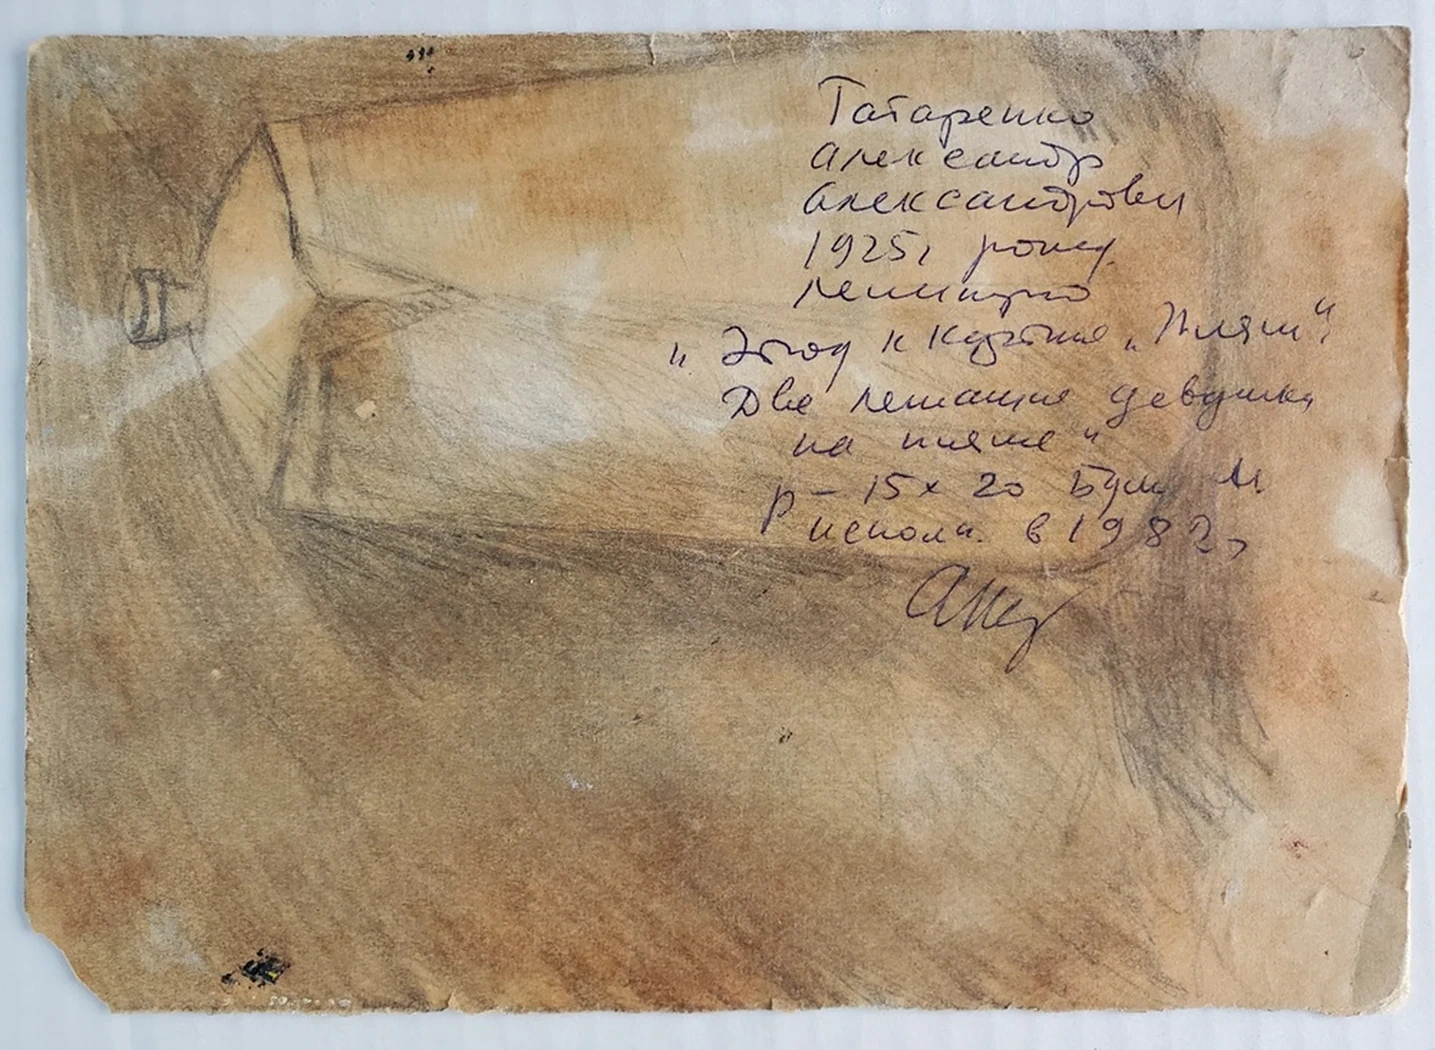 Татаренко
Александр
Александрович
1925г рожд.
Ленинград
„Этюд к картине „Пляж“
Две лежащие девушки
на пляже“
р – 15х20 Бум М
исполн. в 1982г